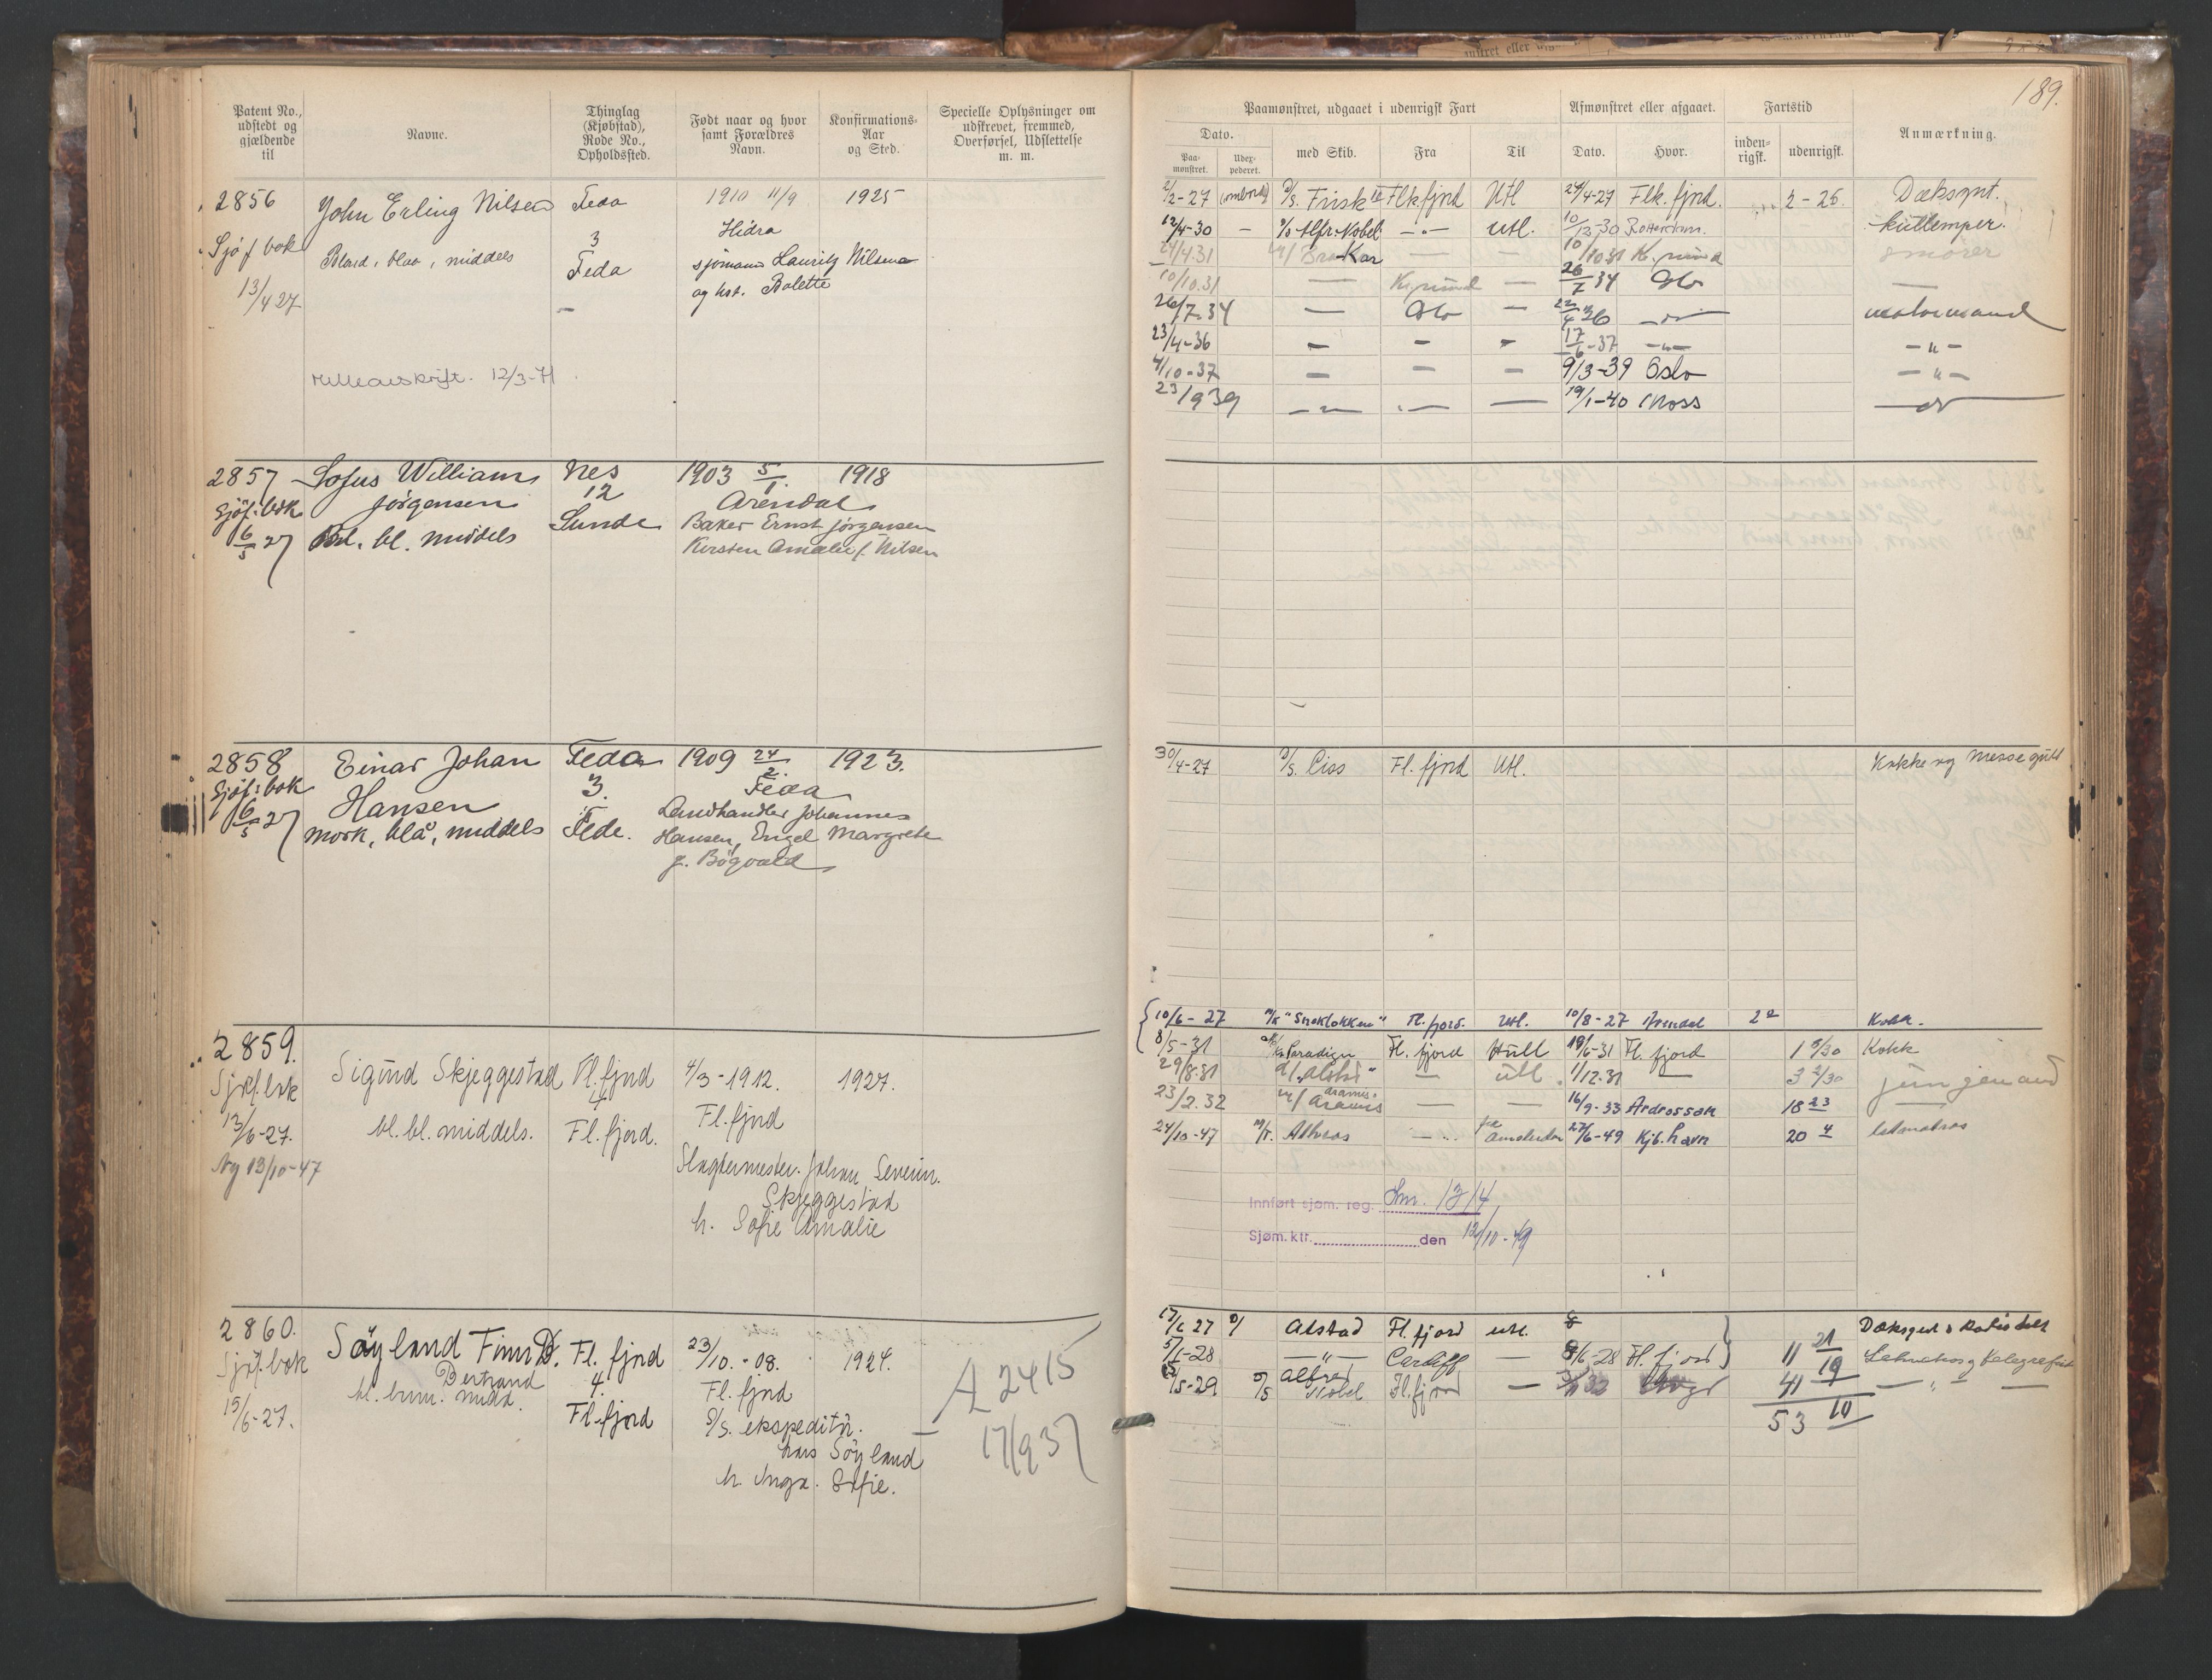 Patent No., udstedt og gjældende til
Navne.
Thinglag (Kjøbstad), Rode No., Opholdssted.
Født naar og hvor samt Forældres Navn.
Konfirmations-Aar og Sted.
Specielle Oplysninger om udskrevet, fremmed, Overførsel, Udslettelse m. m.
2856 John Erling Nilsen Feda 1910 11/9 1925
Sjøf bok Blond, blaa, middels 3 Hidra
13/4 27 Feda sjømann Lauritz Nilsen
og hst. Bolette
12/3-71
2857 Sofus William Nes 1903 5/1. 1918
Sjøf. bok Jørgensen 12 Arendal
6/5 27 Bl. bl. middels Sunde Baker Ernst Jørgensen
Kirsten Amalie f. Nilsen
2858 Einar Johan Feda 1909 24/2. 1923.
Sjøf. bok Hansen 3. Feda
6/5 27 mørk, blå, middels Fede. Landhandler Johannes
Hansen, Engel Margrete
f. Bøgvald
2859. Sigurd Skjeggestad Fl. fjord 4/3-1912. 1927.
Sjøf. bok 4 Fl. fjord
13/6-27. bl. bl. middels. Fl. fjord.
Ny 13/10-47 Slagtermester Johan Severin
Skjeggestad
h. Sofie Amalie
2860. Söyland Finn B. Fl. fjord 23/10.-08. 1924.
Sjøf. bok Bertrand 4. Fl. fjord A 2415
15/6-27. bl. brun. midd. Fl. fjord D/S. ekspeditør. 17/9 37
Hans Söyland
h. Inga Sofie.
189.
Paamønstret, udgaaet i udenrigsk Fart
Afmønstret eller afgaaet.
Fartstid
Anmærkning.
Dato.
Paa-mønstret.
Udex-pederet.
med Skib.
Fra
Til
Dato.
Hvor.
inden-rigsk.
udenrigsk.
2/2-27 (ombord) D/S. Frisk Flkfjord Utl 24/4-27 Flk. fjord. 2-25. Dæksgut.
12/4-30 — D/S Alfr. Nobel -"- Utl. 10/12-30 Rotterdam. kullemper.
24/4.31 M/ Bra-Kar — — 10/10 31 Kr. sund smører
10/10.31 — Kr. sund — 26/7 34 Oslo —
26/7.34 — Oslo — 22/4 36 -"- motormand
23/4-36 — — — 17/6-37 -"- -"-
4/10-37 — — — 9/3-39 Oslo -"-
23/9 39 — — — 19/1-40 Moss
30/4-27 D/S. Ciss Fl. fjord Utl. Kokk og Messegutt
10/6-27 M/K "Sneklokken" Fl. fjord. Utl. 10/8-27 Arendal 2 Kokk.
8/5-31 Paradign Fl. fjord Hull 19/6-31 Fl. fjord 1 Kokk
29/8.31 — utl. 1/12.31 — 3 2/30 jungmand
23/2.32 M/ Aramis — — 16/9-33 Ardrossan 18 23 —
24/10-47 M/T. Athos — fra Amsterdam 27/6-49 Kjb. havn 20 4 letmatros
Innført sjøm. reg. Sm. 1314
Sjøm. ktr. den 12/10-49
17/6 27 D/ Alstad Fl. fjord utl.
5/1-28 -"- Cardiff — 8/6-28 Fl. fjord 11 21 Letmatros
/5-29 D/S Alfred Nobel Fl. fjord — 41 19 -"-
53 10